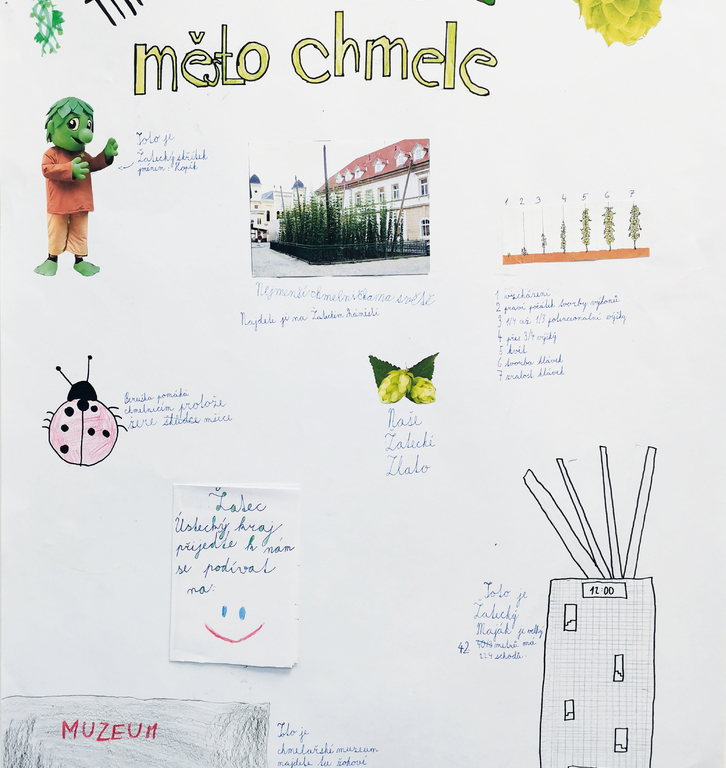 město chmele
Toto je
Žatecký skřítek
jménem: Kopík
Nejmenší chmelnička na světě
Najdete ji na Žateckém náměstí
1 2 3 4 5 6 7
1 vzcházení
2 pravý počátek tvorby výhonů
3 1/4 až 1/3 potencionální výšky
4 přes 3/4 výšky
5 květ
6 tvorba hlávek
7 zralost hlávek
Beruška pomáhá
chmelnicím protože
žere škůdce mšice
Naše
Žatecké
Zlato
Žatec
Ústecký kraj
přijeďte k nám
se podívat
na:
12:00
Toto je
Žatecký
Maják je velký
42 metrů má
schodů
MUZEUM
Toto je
chmelařské muzeum
najdete tu